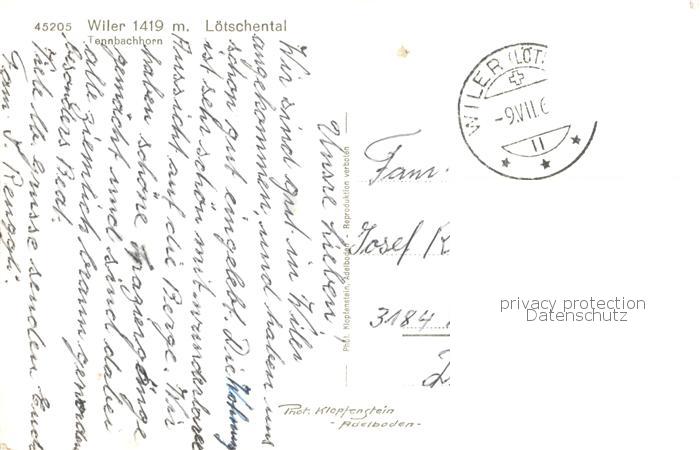 45205 Wiler 1419 m. Lötschental
Tennbachhorn
Unsre Lieben!
Wir sind gut in Wiler
angekommen, und haben uns
schon gut eingelebt. Die Wohnung
ist sehr schön mit wunderbarer
Aussicht auf die Berge. Wir
haben schöne
gemacht und sind dabei
alle ziemlich braun geworden
besonders Beat.
Viele lb. Grüsse senden Euch
Fam. J. Renggli.
Phot. Klopfenstein, Adelboden - Reproduktion verboten
WILER (LÖT.
-9.VII.6
11
Fam.
Josef R
3184
privacy protection
Datenschutz
Phot. Klopfenstein
- Adelboden -